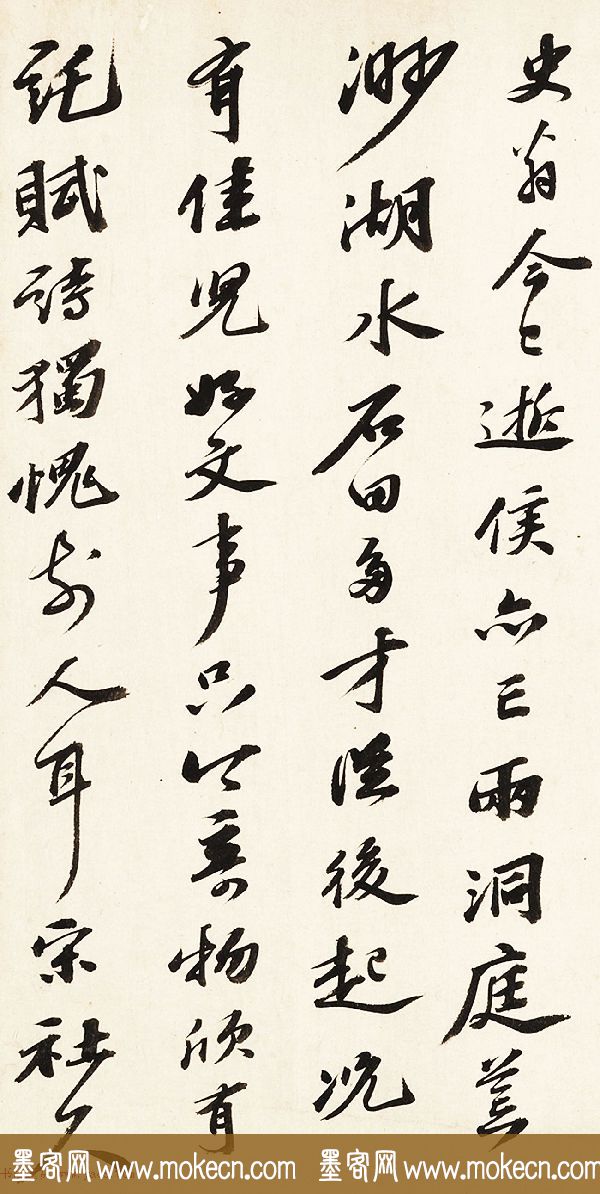 史翁今已逝侯亦亡兩洞庭
渺湖水石田多才從後起況
有佳兒好文事只寄物欣有
託賦詩獨愧前人耳宗社久
墨客网 www.mokecn.com 墨客网 www.mokecn.com